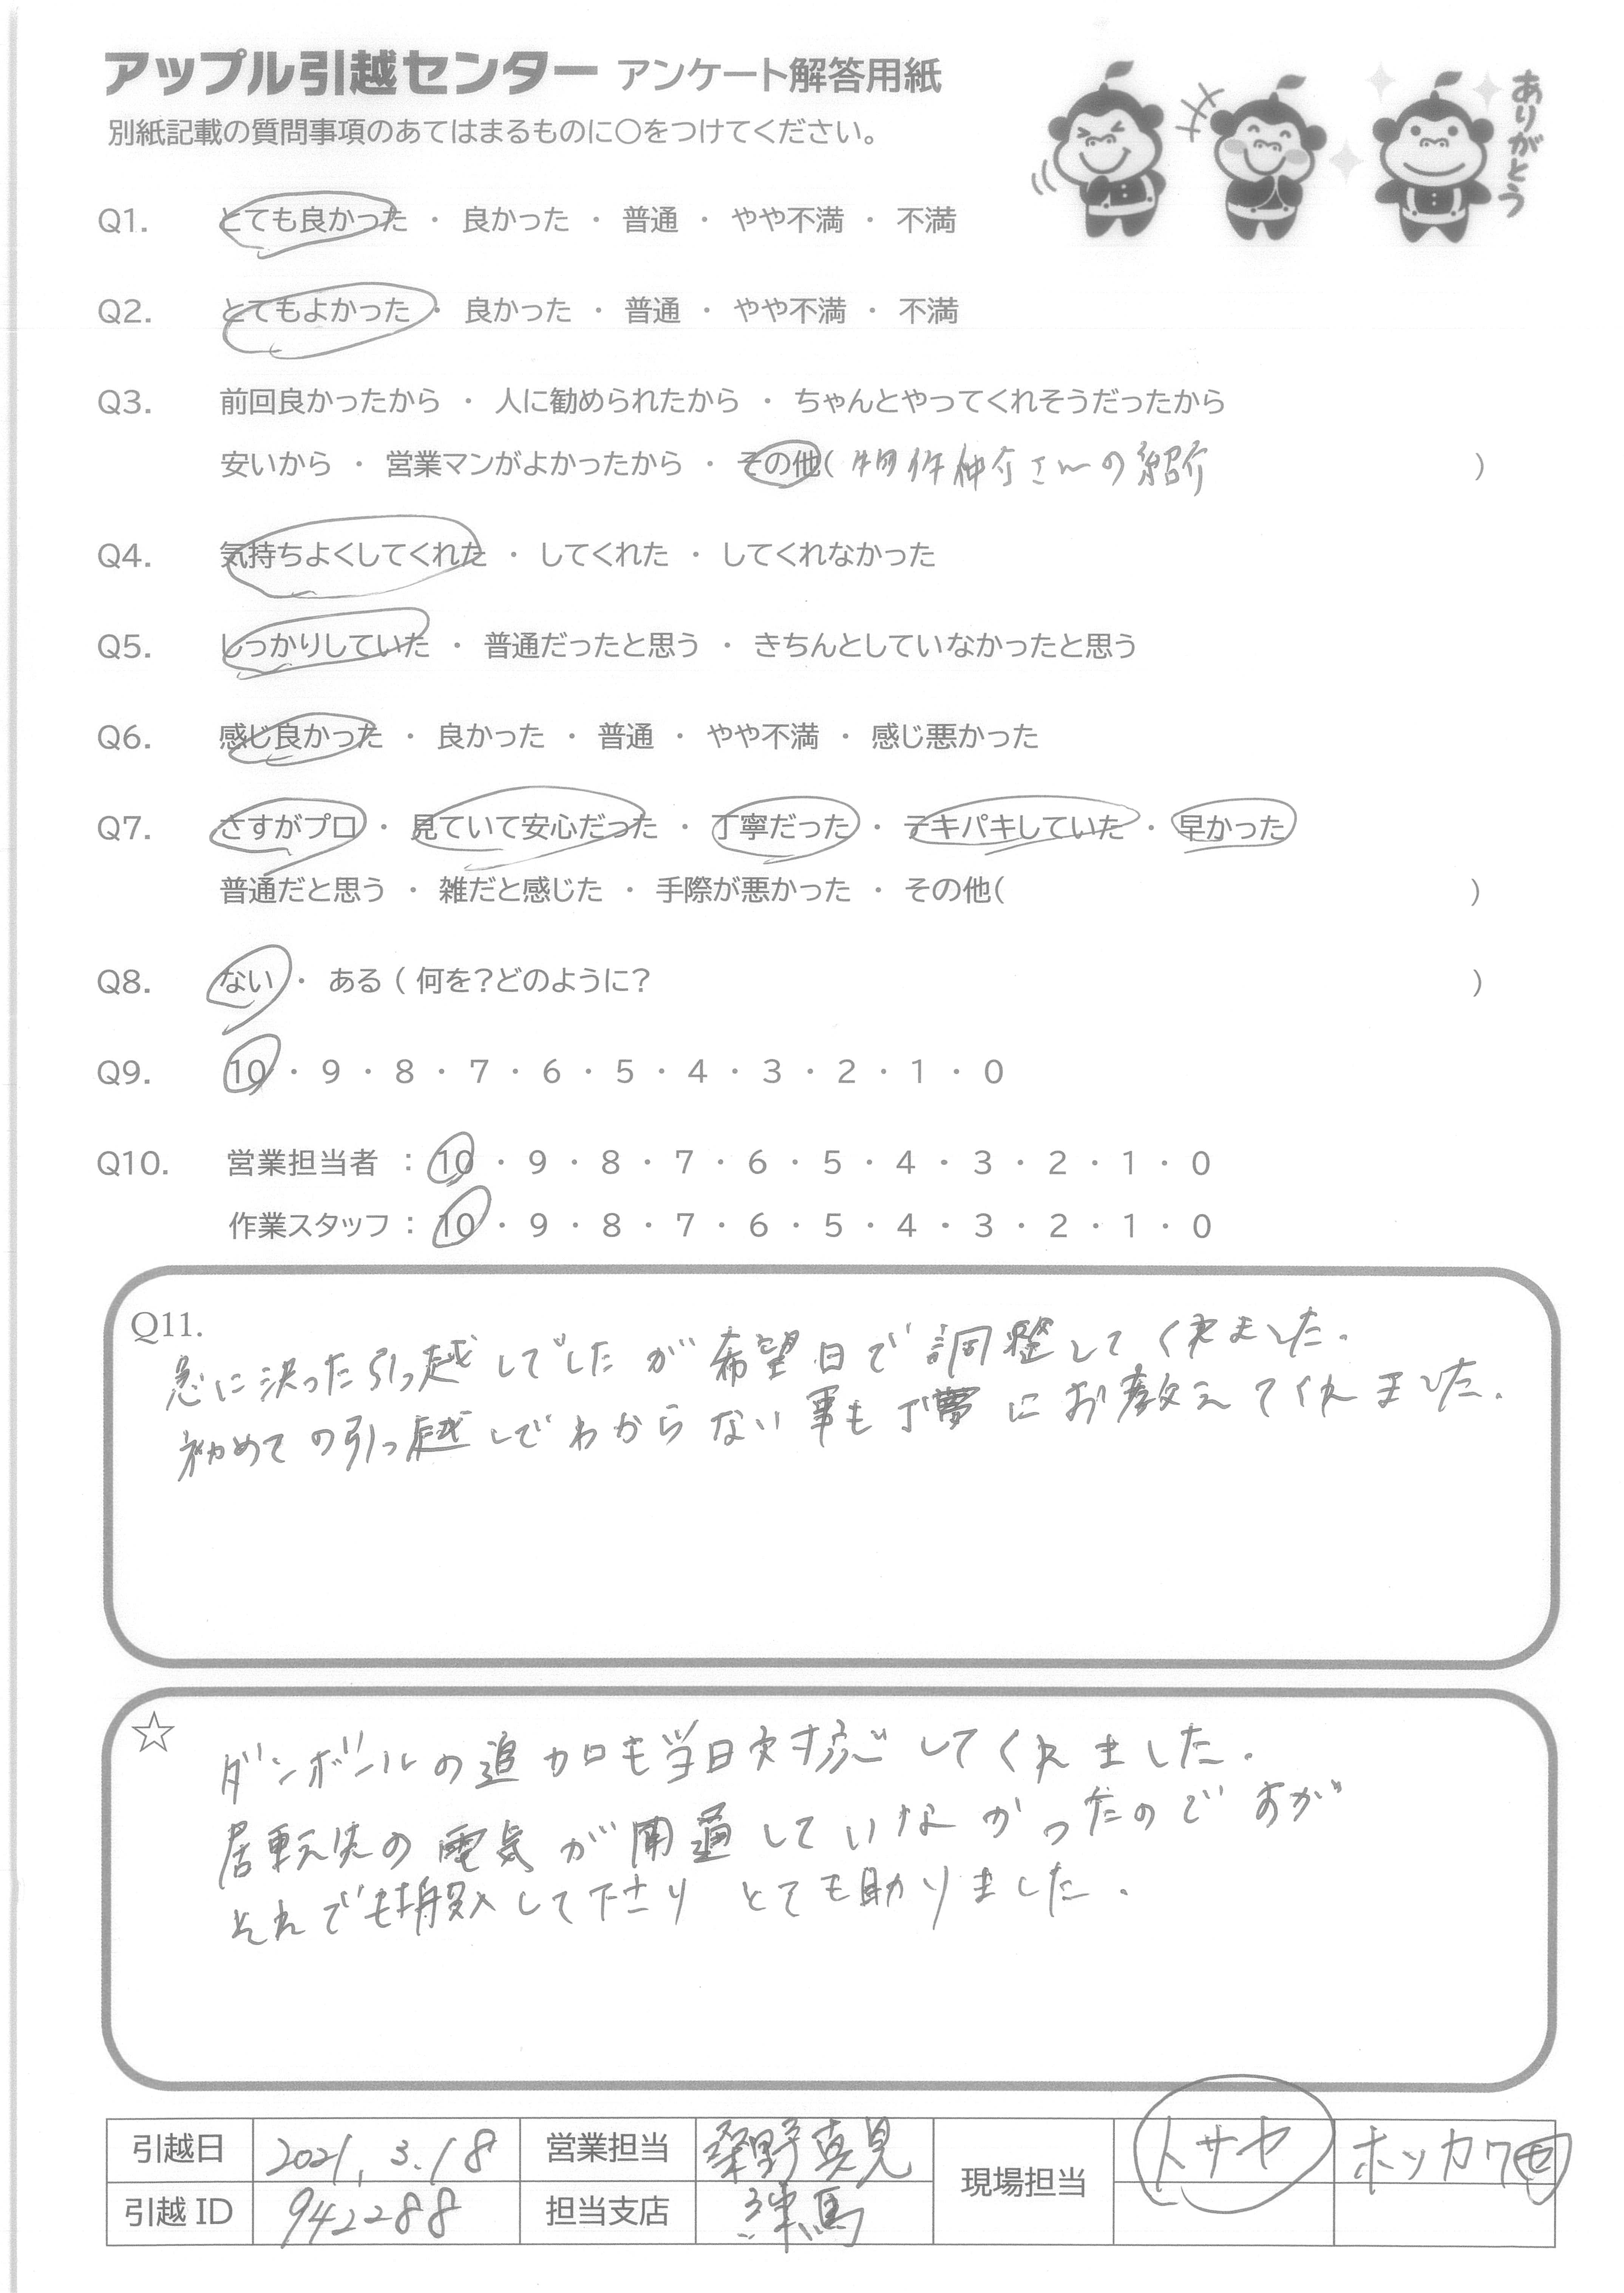 アップル引越センター アンケート解答用紙
ありがとう
別紙記載の質問事項のあてはまるものに○をつけてください。
Q1. とても良かった ・ 良かった ・ 普通 ・ やや不満 ・ 不満
Q2. とてもよかった ・ 良かった ・ 普通 ・ やや不満 ・ 不満
Q3. 前回良かったから ・ 人に勧められたから ・ ちゃんとやってくれそうだったから
安いから ・ 営業マンがよかったから ・ その他( 物件仲介さんの紹介 )
Q4. 気持ちよくしてくれた ・ してくれた ・ してくれなかった
Q5. しっかりしていた ・ 普通だったと思う ・ きちんとしていなかったと思う
Q6. 感じ良かった ・ 良かった ・ 普通 ・ やや不満 ・ 感じ悪かった
Q7. さすがプロ ・ 見ていて安心だった ・ 丁寧だった ・ テキパキしていた ・ 早かった
普通だと思う ・ 雑だと感じた ・ 手際が悪かった ・ その他( )
Q8. ない ・ ある ( 何を?どのように? )
Q9. 10 ・ 9 ・ 8 ・ 7 ・ 6 ・ 5 ・ 4 ・ 3 ・ 2 ・ 1 ・ 0
Q10. 営業担当者 : 10 ・ 9 ・ 8 ・ 7 ・ 6 ・ 5 ・ 4 ・ 3 ・ 2 ・ 1 ・ 0
作業スタッフ : 10 ・ 9 ・ 8 ・ 7 ・ 6 ・ 5 ・ 4 ・ 3 ・ 2 ・ 1 ・ 0
Q11.
急に決った引っ越しでしたが希望日で調整してくれました.
初めての引っ越しでわからない事も丁寧にお教えてくれました.
☆ ダンボールの追加も当日対応してくれました.
居転先の電気が開通していなかったのですが
それでも搬入して下さり とても助りました.
引越日 2021.3.18 営業担当 桑野真見 現場担当 トサヤ ホッカワ
引越 ID 942288 担当支店 練馬